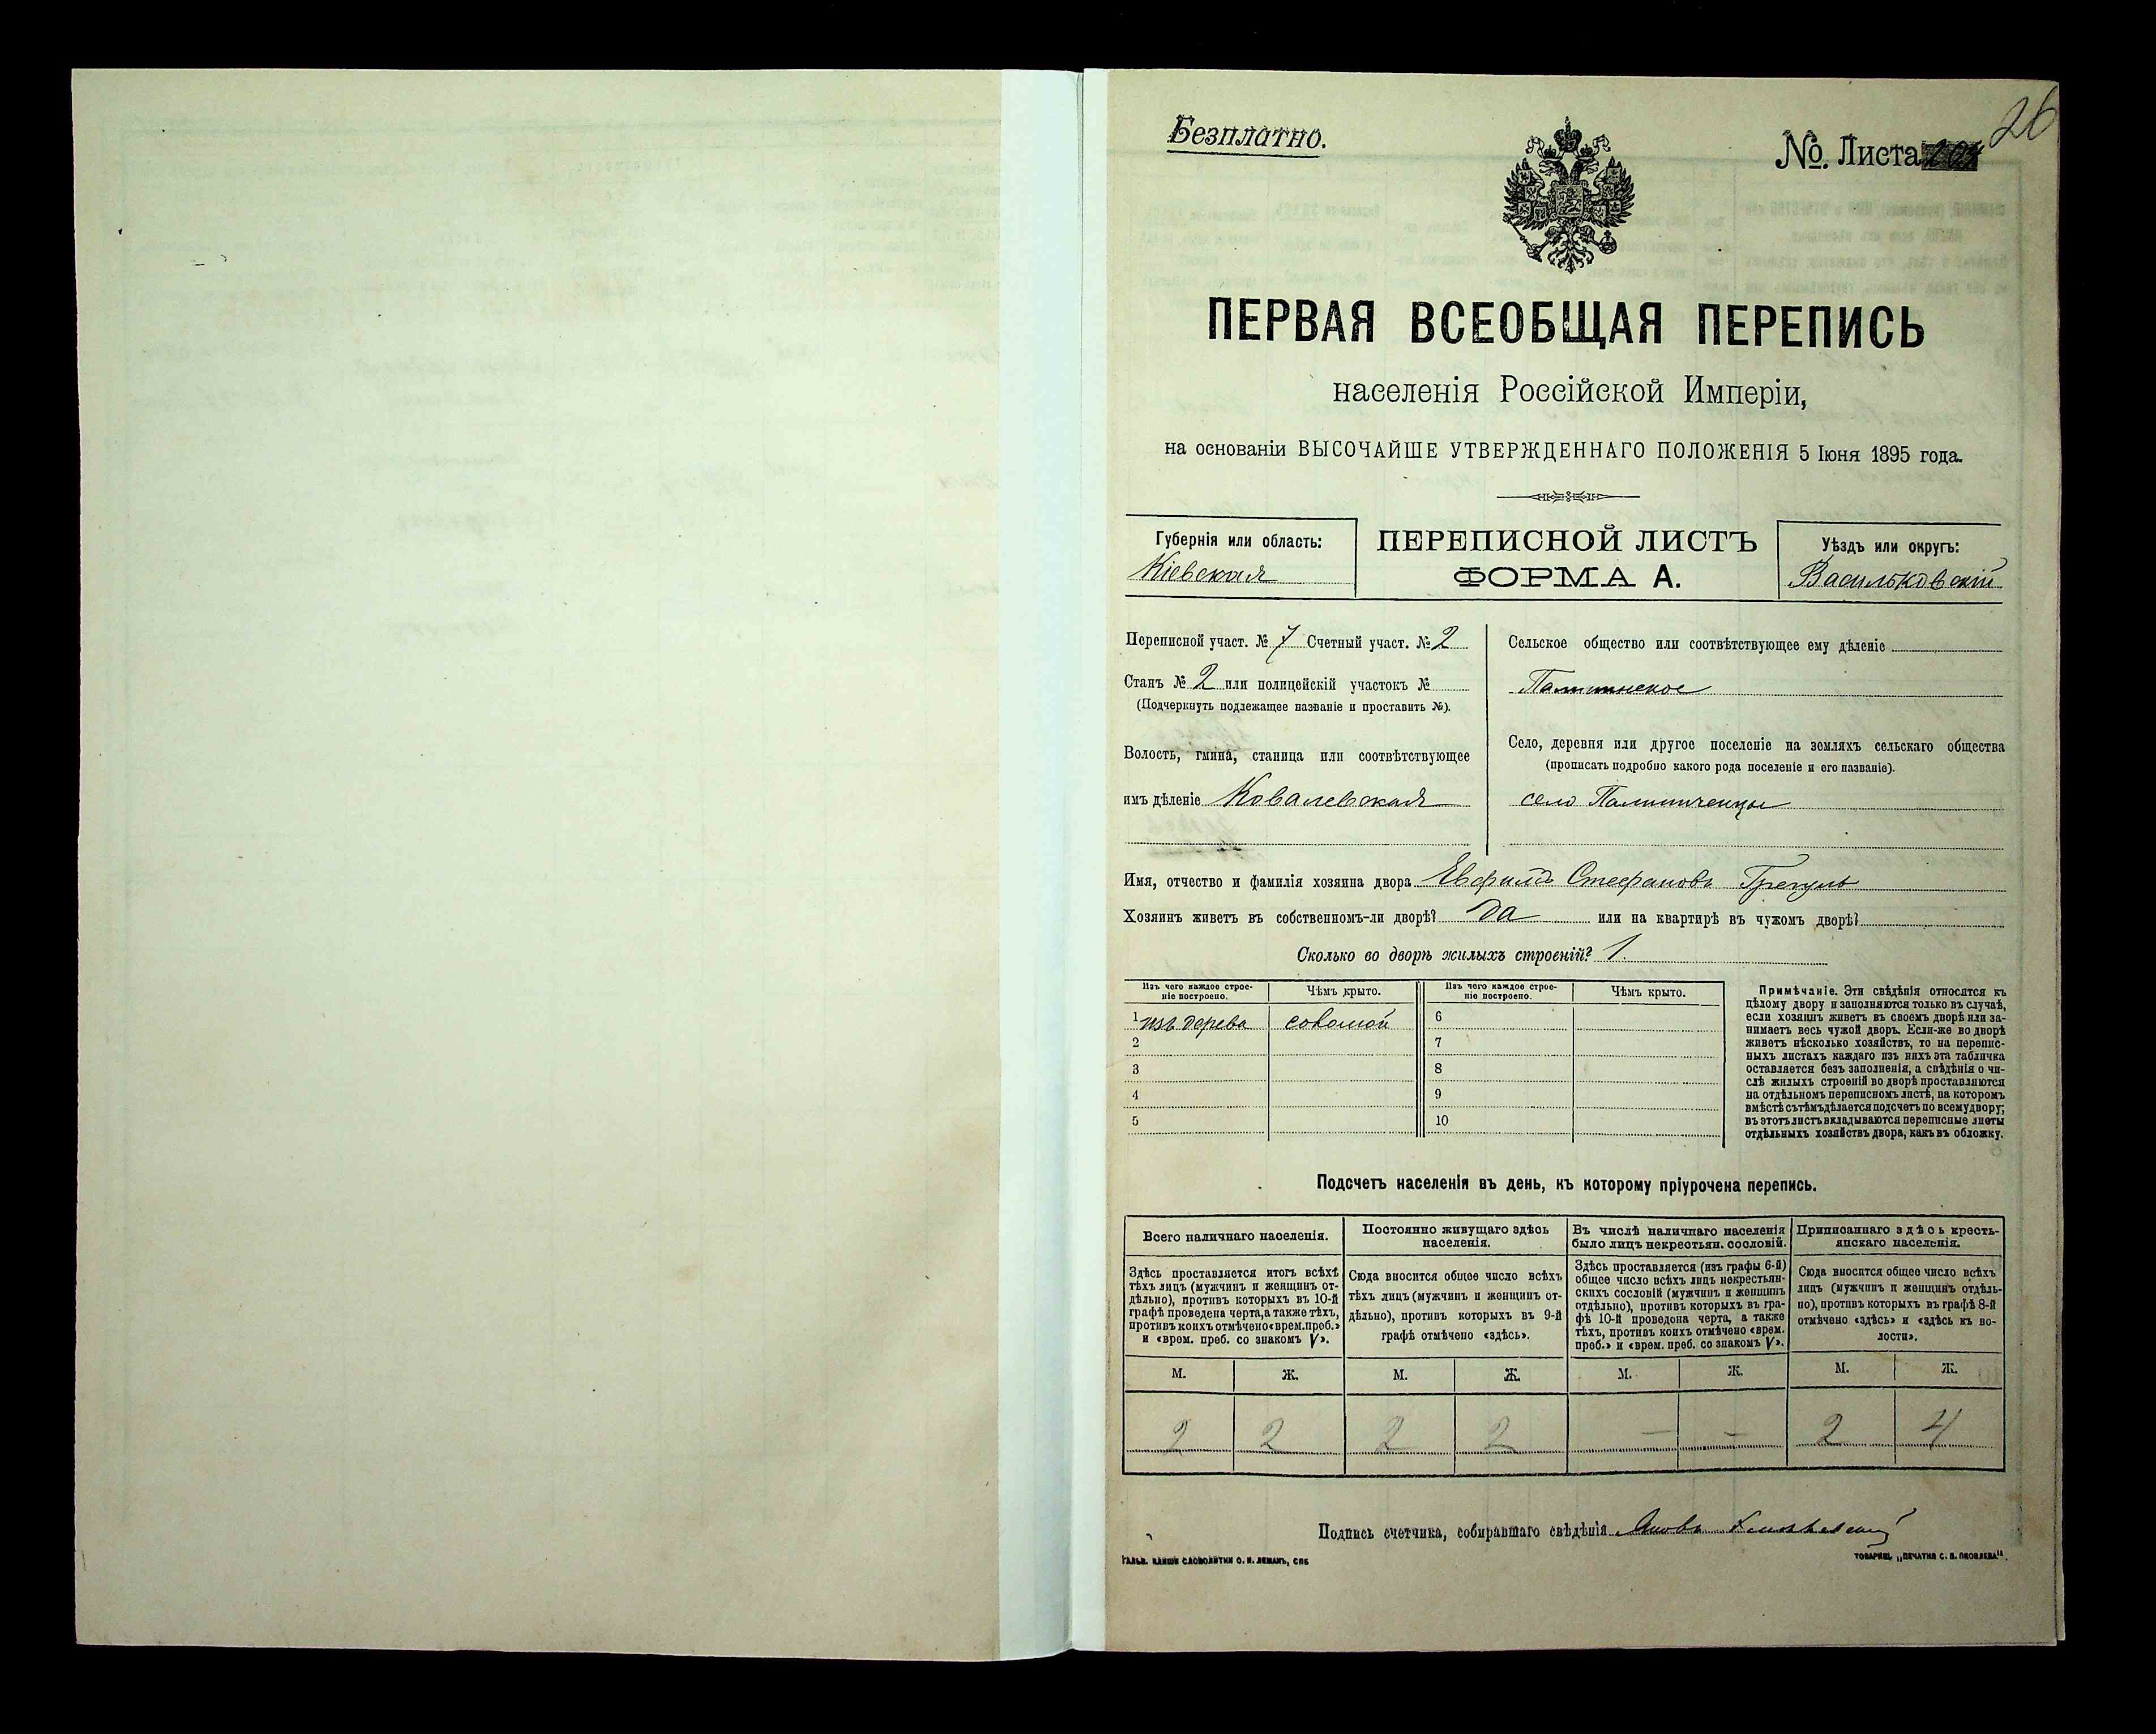 26
Безплатно.
№. Листа
ПЕРВАЯ ВСЕОБЩАЯ ПЕРЕПИСЬ
населенія Россійской Имперіи,
на основаніи ВЫСОЧАЙШЕ УТВЕРЖДЕННАГО ПОЛОЖЕНІЯ 5 Іюня 1895 года.
Губернія или область:
Кіевская
ПЕРЕПИСНОЙ ЛИСТЪ
ФОРМА А.
Уѣздъ или округъ:
Васильковскій
Переписной участ. № 7 Счетный участ. № 2
Станъ № 2 или полицейскій участокъ №
(Подчеркнуть подлежащее названіе и проставить №).
Волость, гмина, станица или соотвѣтствующее
имъ дѣленіе Ковалевская
Сельское общество или соотвѣтствующее ему дѣленіе
Село, деревня или другое поселеніе на земляхъ сельскаго общества
(прописать подробно какого рода поселеніе и его названіе).
село Паляниченцы
Имя, отчество и фамилія хозяина двора Евфимъ Стефановъ
Хозяинъ живетъ въ собственномъ-ли дворѣ? да или на квартирѣ въ чужомъ дворѣ?
Сколько во дворѣ жилыхъ строеній? 1.
Изъ чего каждое строе-
ніе построено.
Чѣмъ крыто.
Изъ чего каждое строе-
ніе построено.
Чѣмъ крыто.
1 изъ дерева соломой 6
2 7
3 8
4 9
5 10
Примѣчаніе. Эти свѣдѣнія относятся къ
цѣлому двору и заполняются только въ случаѣ,
если хозяинъ живетъ въ своемъ дворѣ или за-
нимаетъ весь чужой дворъ. Если-же во дворѣ
живетъ нѣсколько хозяйствъ, то на перепис-
ныхъ листахъ каждаго изъ нихъ эта табличка
оставляется безъ заполненія, а свѣдѣнія о чи-
слѣ жилыхъ строеній во дворѣ проставляются
на отдѣльномъ переписномъ листѣ, на которомъ
вмѣстѣ съ тѣмъ дѣлается подсчетъ по всему двору;
въ этотъ листъ вкладываются переписные листы
отдѣльныхъ хозяйствъ двора, какъ въ обложку.
Подсчетъ населенія въ день, къ которому пріурочена перепись.
Всего наличнаго населенія.
Здѣсь проставляется итогъ всѣхъ
тѣхъ лицъ (мужчинъ и женщинъ от-
дѣльно), противъ которыхъ въ 10-й
графѣ проведена черта, а также тѣхъ,
противъ коихъ отмѣчено «врем. преб.»
и «врем. преб. со знакомъ V».
Постоянно живущаго здѣсь
населенія.
Сюда вносится общее число всѣхъ
тѣхъ лицъ (мужчинъ и женщинъ от-
дѣльно), противъ которыхъ въ 9-й
графѣ отмѣчено «здѣсь».
Въ числѣ наличнаго населенія
было лицъ некрестьян. сословій.
Здѣсь проставляется (изъ графы 6-й)
общее число всѣхъ лицъ некрестьян-
скихъ сословій (мужчинъ и женщинъ
отдѣльно), противъ которыхъ въ гра-
фѣ 10-й проведена черта, а также
тѣхъ, противъ коихъ отмѣчено «врем.
преб.» и «врем. преб. со знакомъ V».
Приписаннаго здѣсь кресть-
янскаго населенія.
Сюда вносится общее число всѣхъ
лицъ (мужчинъ и женщинъ отдѣль-
но), противъ которыхъ въ графѣ 8-й
отмѣчено «здѣсь» и «здѣсь къ во-
лости».
М. Ж. М. Ж. М. Ж. М. Ж.
2 2 2 2 — — 2 4
Подпись счетчика, собиравшаго свѣдѣнія
ГАЛЬВ. КЛИШЕ СЛОВОЛИТНИ О. И. ЛЕМАНЪ, СПБ
ТОВАРИЩ. „ПЕЧАТНЯ С. П. ЯКОВЛЕВА".